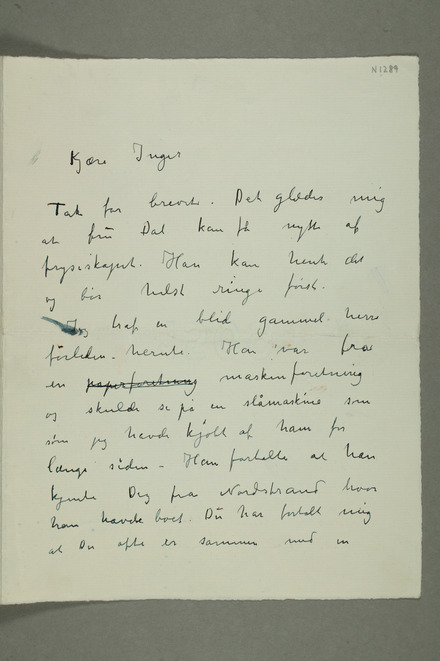 N 1289
Kjære Inger
Tak for brevet. Det glæder mig
at fru Dal kan få nytte af
fryseskapet. Han kan hente det
og bør helst ringe først.
Jeg traf en blid gammel herre
forleden hernede. Han var fra
en papirforretning maskinforretning
og skulde se på en slåmaskine som
som jeg havde kjøbt af ham for
længe siden – Han fortalte at han
kjente Dig fra Nordstrand hvor
han havde boet. Du har fortalt mig
at Du ofte er sammen med en